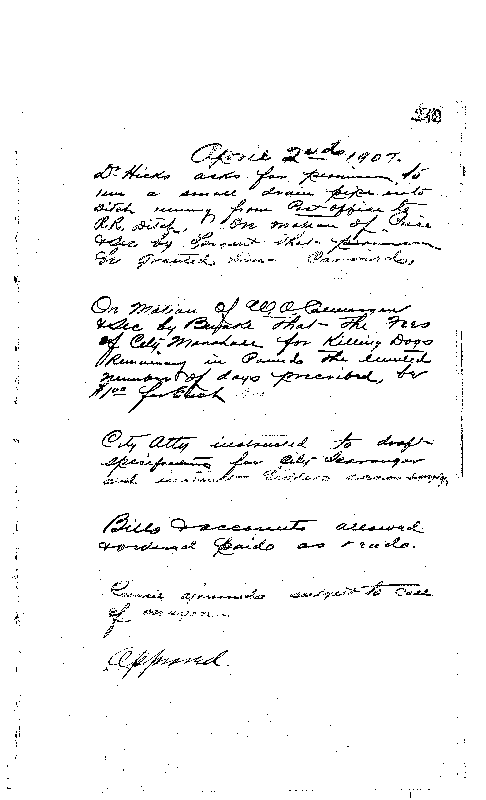 240
April 2nd 1907.
Dr Hicks asks for permission to
run a small drain pipe into
ditch runing from Post office to
R.R. Ditch, On motion of
& Sec by Sargent that permission
be granted him
On Motion of W.O.
& Sec by that the Fees
of City Marshall for Killing Dogs
Remaining in Pounds the limited
number of days prescribed, be
$1.00 for Each
City Atty instructed to draft
specifications for City Scavenger
and
Bills & accounts allowed
& ordered paid as read.
Council adjourned subject to call
of
Approved.